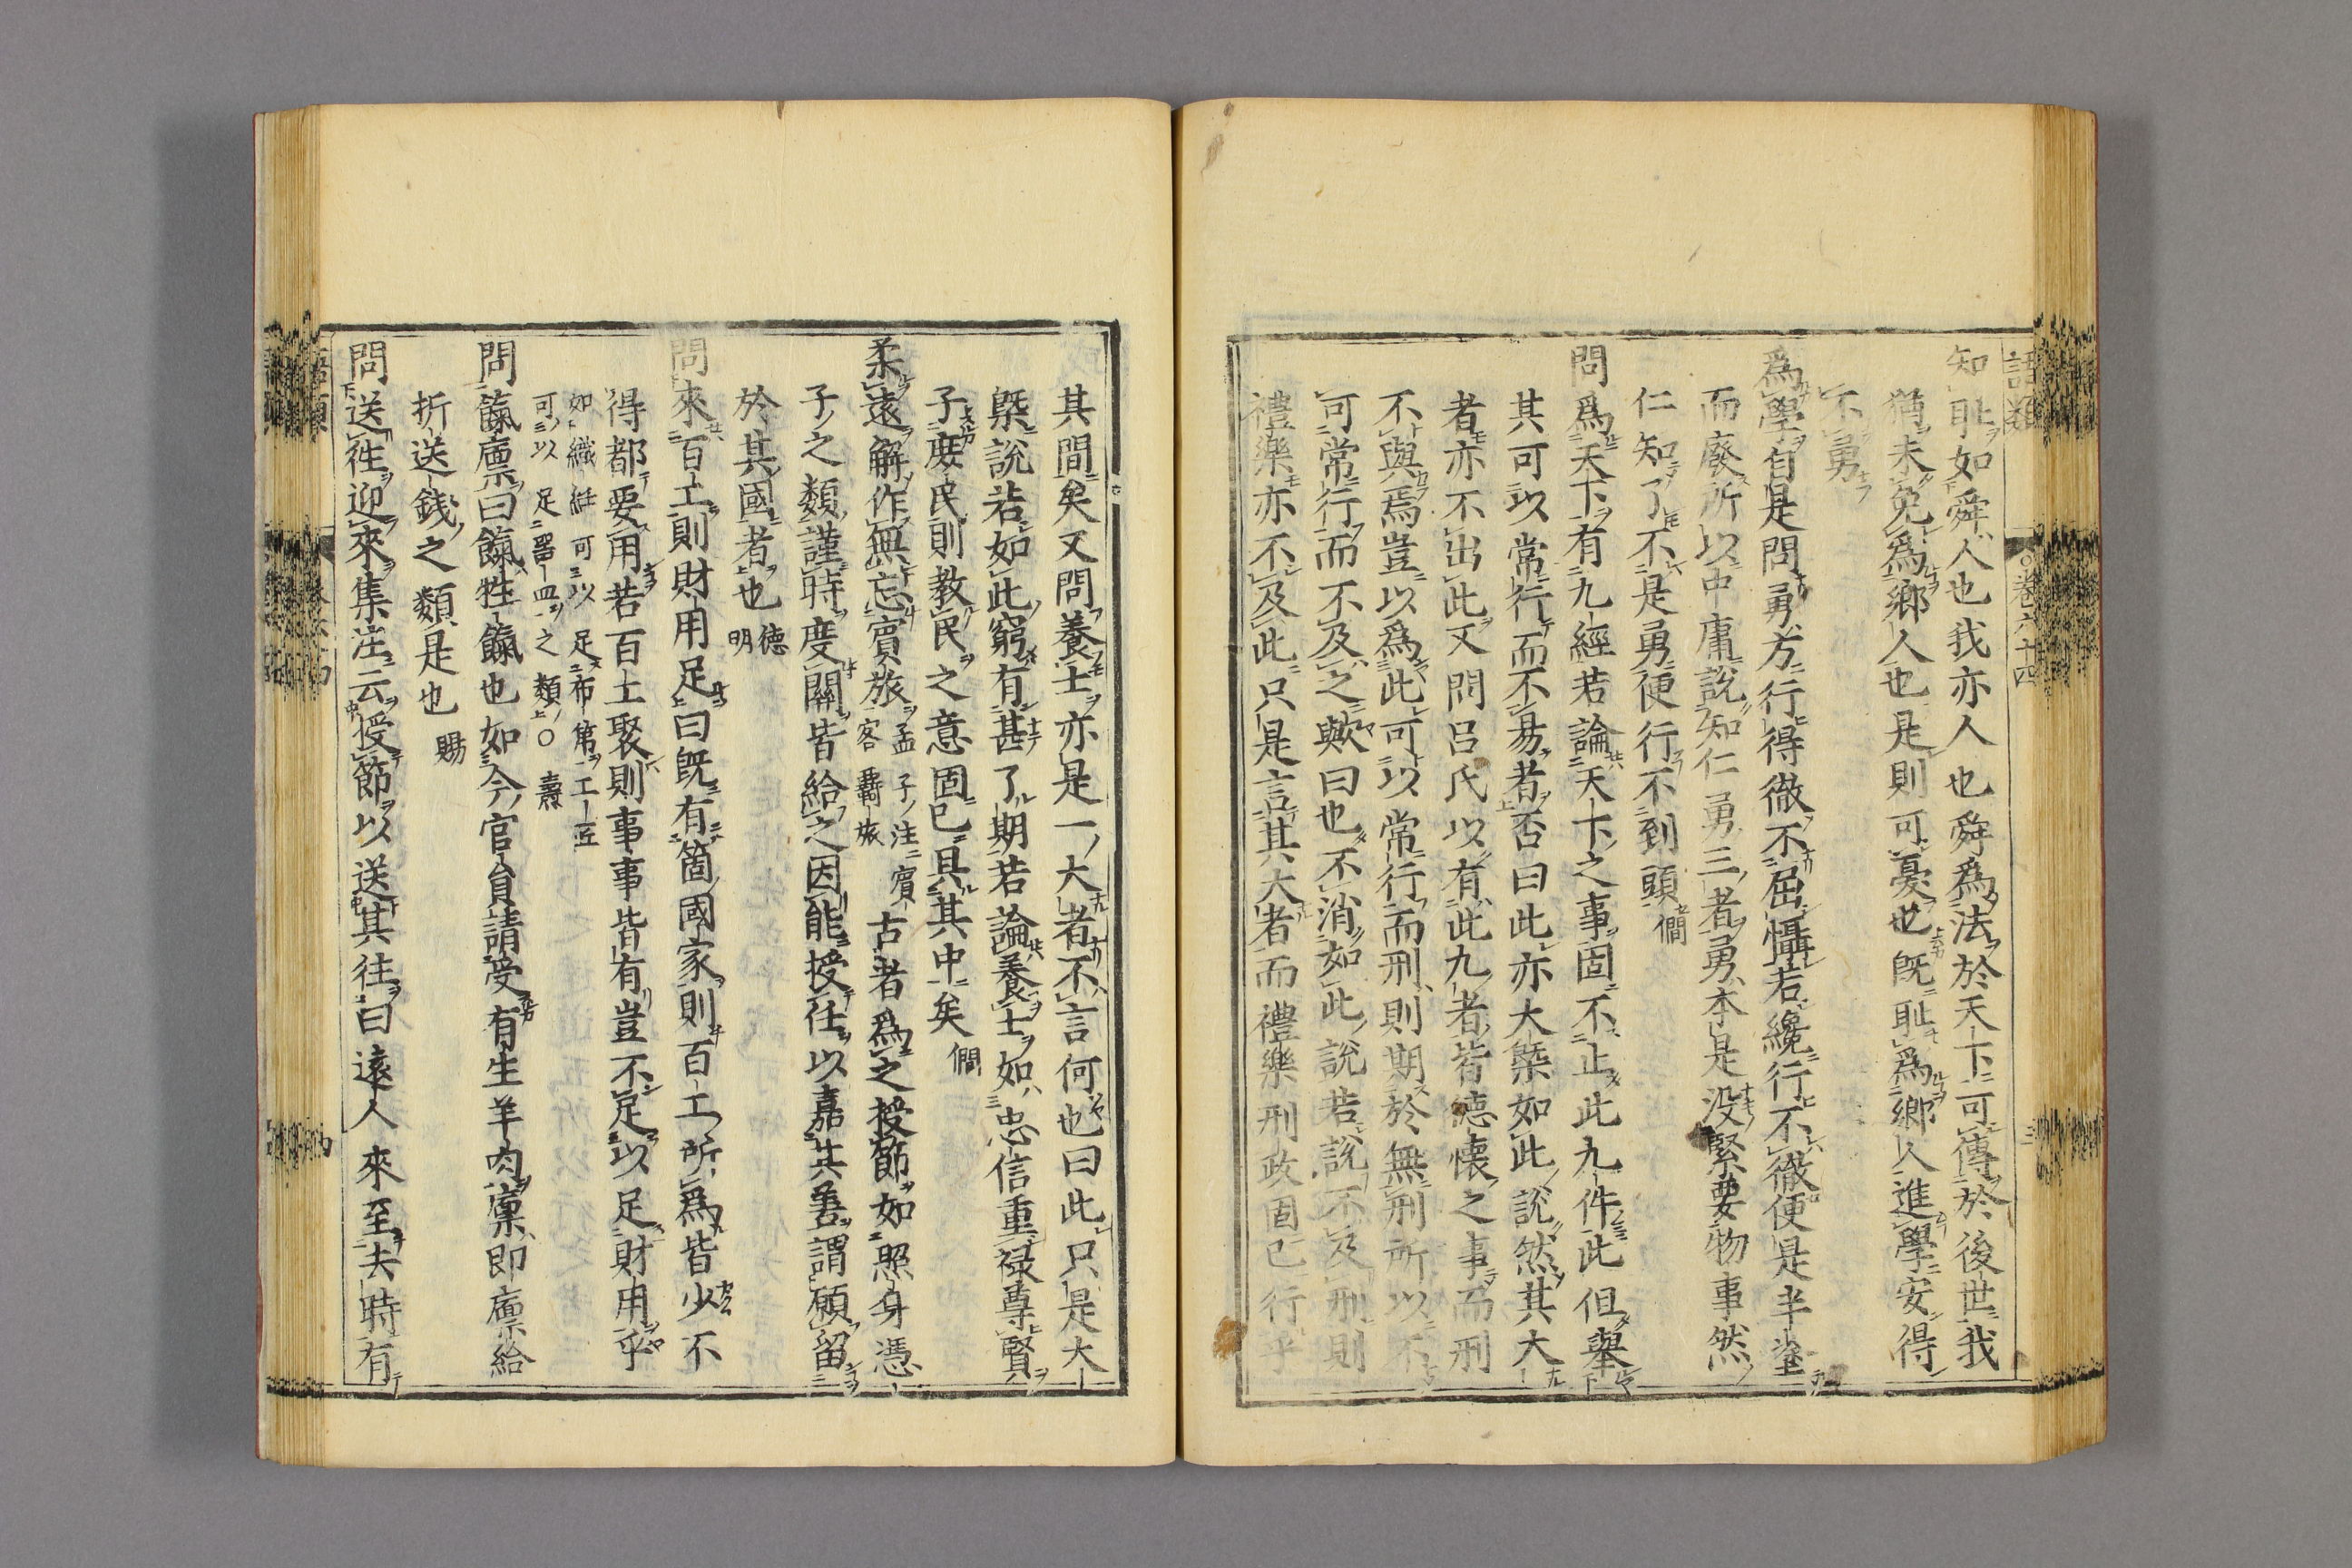 語類
卷六十四
知恥如舜人也我亦人也舜爲法於天下可傳於後世我
猶未免爲鄉人也是則可憂也既恥爲鄉人進學安得
不勇
爲學自是問勇方行得徹不屈懾若纔行不徹便是半塗
而廢所以中庸說知仁勇三者勇本是没緊要物事然
仁知了不是勇便行不到頭僩
問爲天下有九經若論天下之事固不止此九件此但舉
其可以常行而不易者否曰此亦大槩如此說然其大
者亦不出此又問呂氏以有此九者皆德懷之事而刑
不與焉豈以爲此可以常行而刑則期於無刑所以不
可常行而不及之歟曰也不消如此說若說不及刑則
禮樂亦不及此只是言其大者而禮樂刑政固已行乎
其間矣又問養士亦是一大者不言何也曰此只是大
槩說若如此窮有甚了期若論養士如忠信重祿尊賢
子庶民則教民之意固已具其中矣僩
柔遠解作無忘賓旅孟子注賓客羇旅古者爲之授節如照身憑
子之類謹時度關皆給之因能授任以嘉其善謂願留
於其國者也德明
問來百工則財用足曰既有箇國家則百工所爲皆少不
得都要用若百工聚則事事皆有豈不足以足財用乎
如織絍可以足布帛工匠可以足器皿之類○燾
問餼廩曰餼牲餼也如今官員請受有生羊肉廩即廩給
折送錢之類是也賜
問送徃迎來集注云授節以送其往曰遠人來至去時有